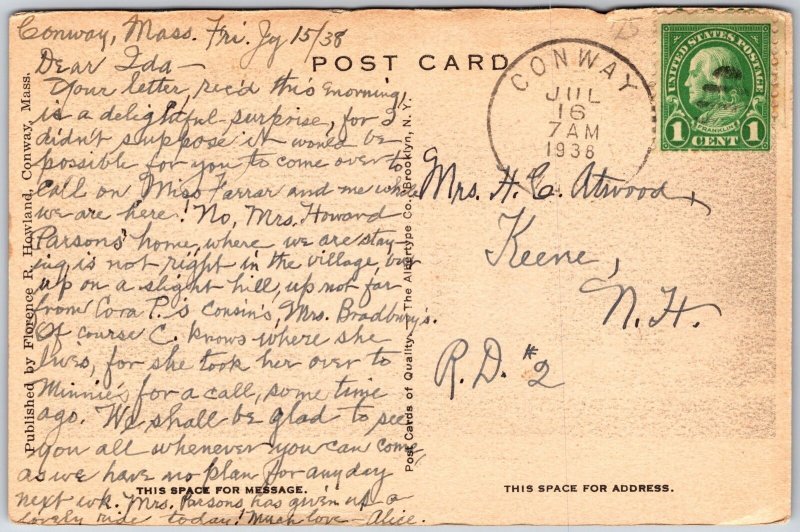 Conway, Mass. Fri. Jy 15/38
Dear Ida—
Your letter, rec'd this morning,
is a delightful surprise, for I
didn't suppose it would be
possible for you to come over to
call on Miss Farrar and me while
we are here! No, Mrs. Howard
Parsons' home, where we are stay-
ing is not right in the village, but
up on a slight hill, up not far
from Cora P.'s cousin's, Mrs. Bradbury's.
Of course C. knows where she
lives, for she took her over to
Minnie's for a call, some time
ago. We shall be glad to see
you all whenever you can come,
as we have no plan for any day
next wk. Mrs. Parsons has given us a
lovely ride today! Much love— Alice.
THIS SPACE FOR MESSAGE.
Published by Florence R. Howland, Conway, Mass.
POST CARD
Post Cards of Quality. The Albertype Co., Brooklyn, N. Y.
25
CONWAY
JUL
16
7 AM
1938
UNITED STATES POSTAGE
FRANKLIN
1 CENT 1
Mrs. H. C. Atwood,
Keene,
N. H.
R.D. #2
THIS SPACE FOR ADDRESS.